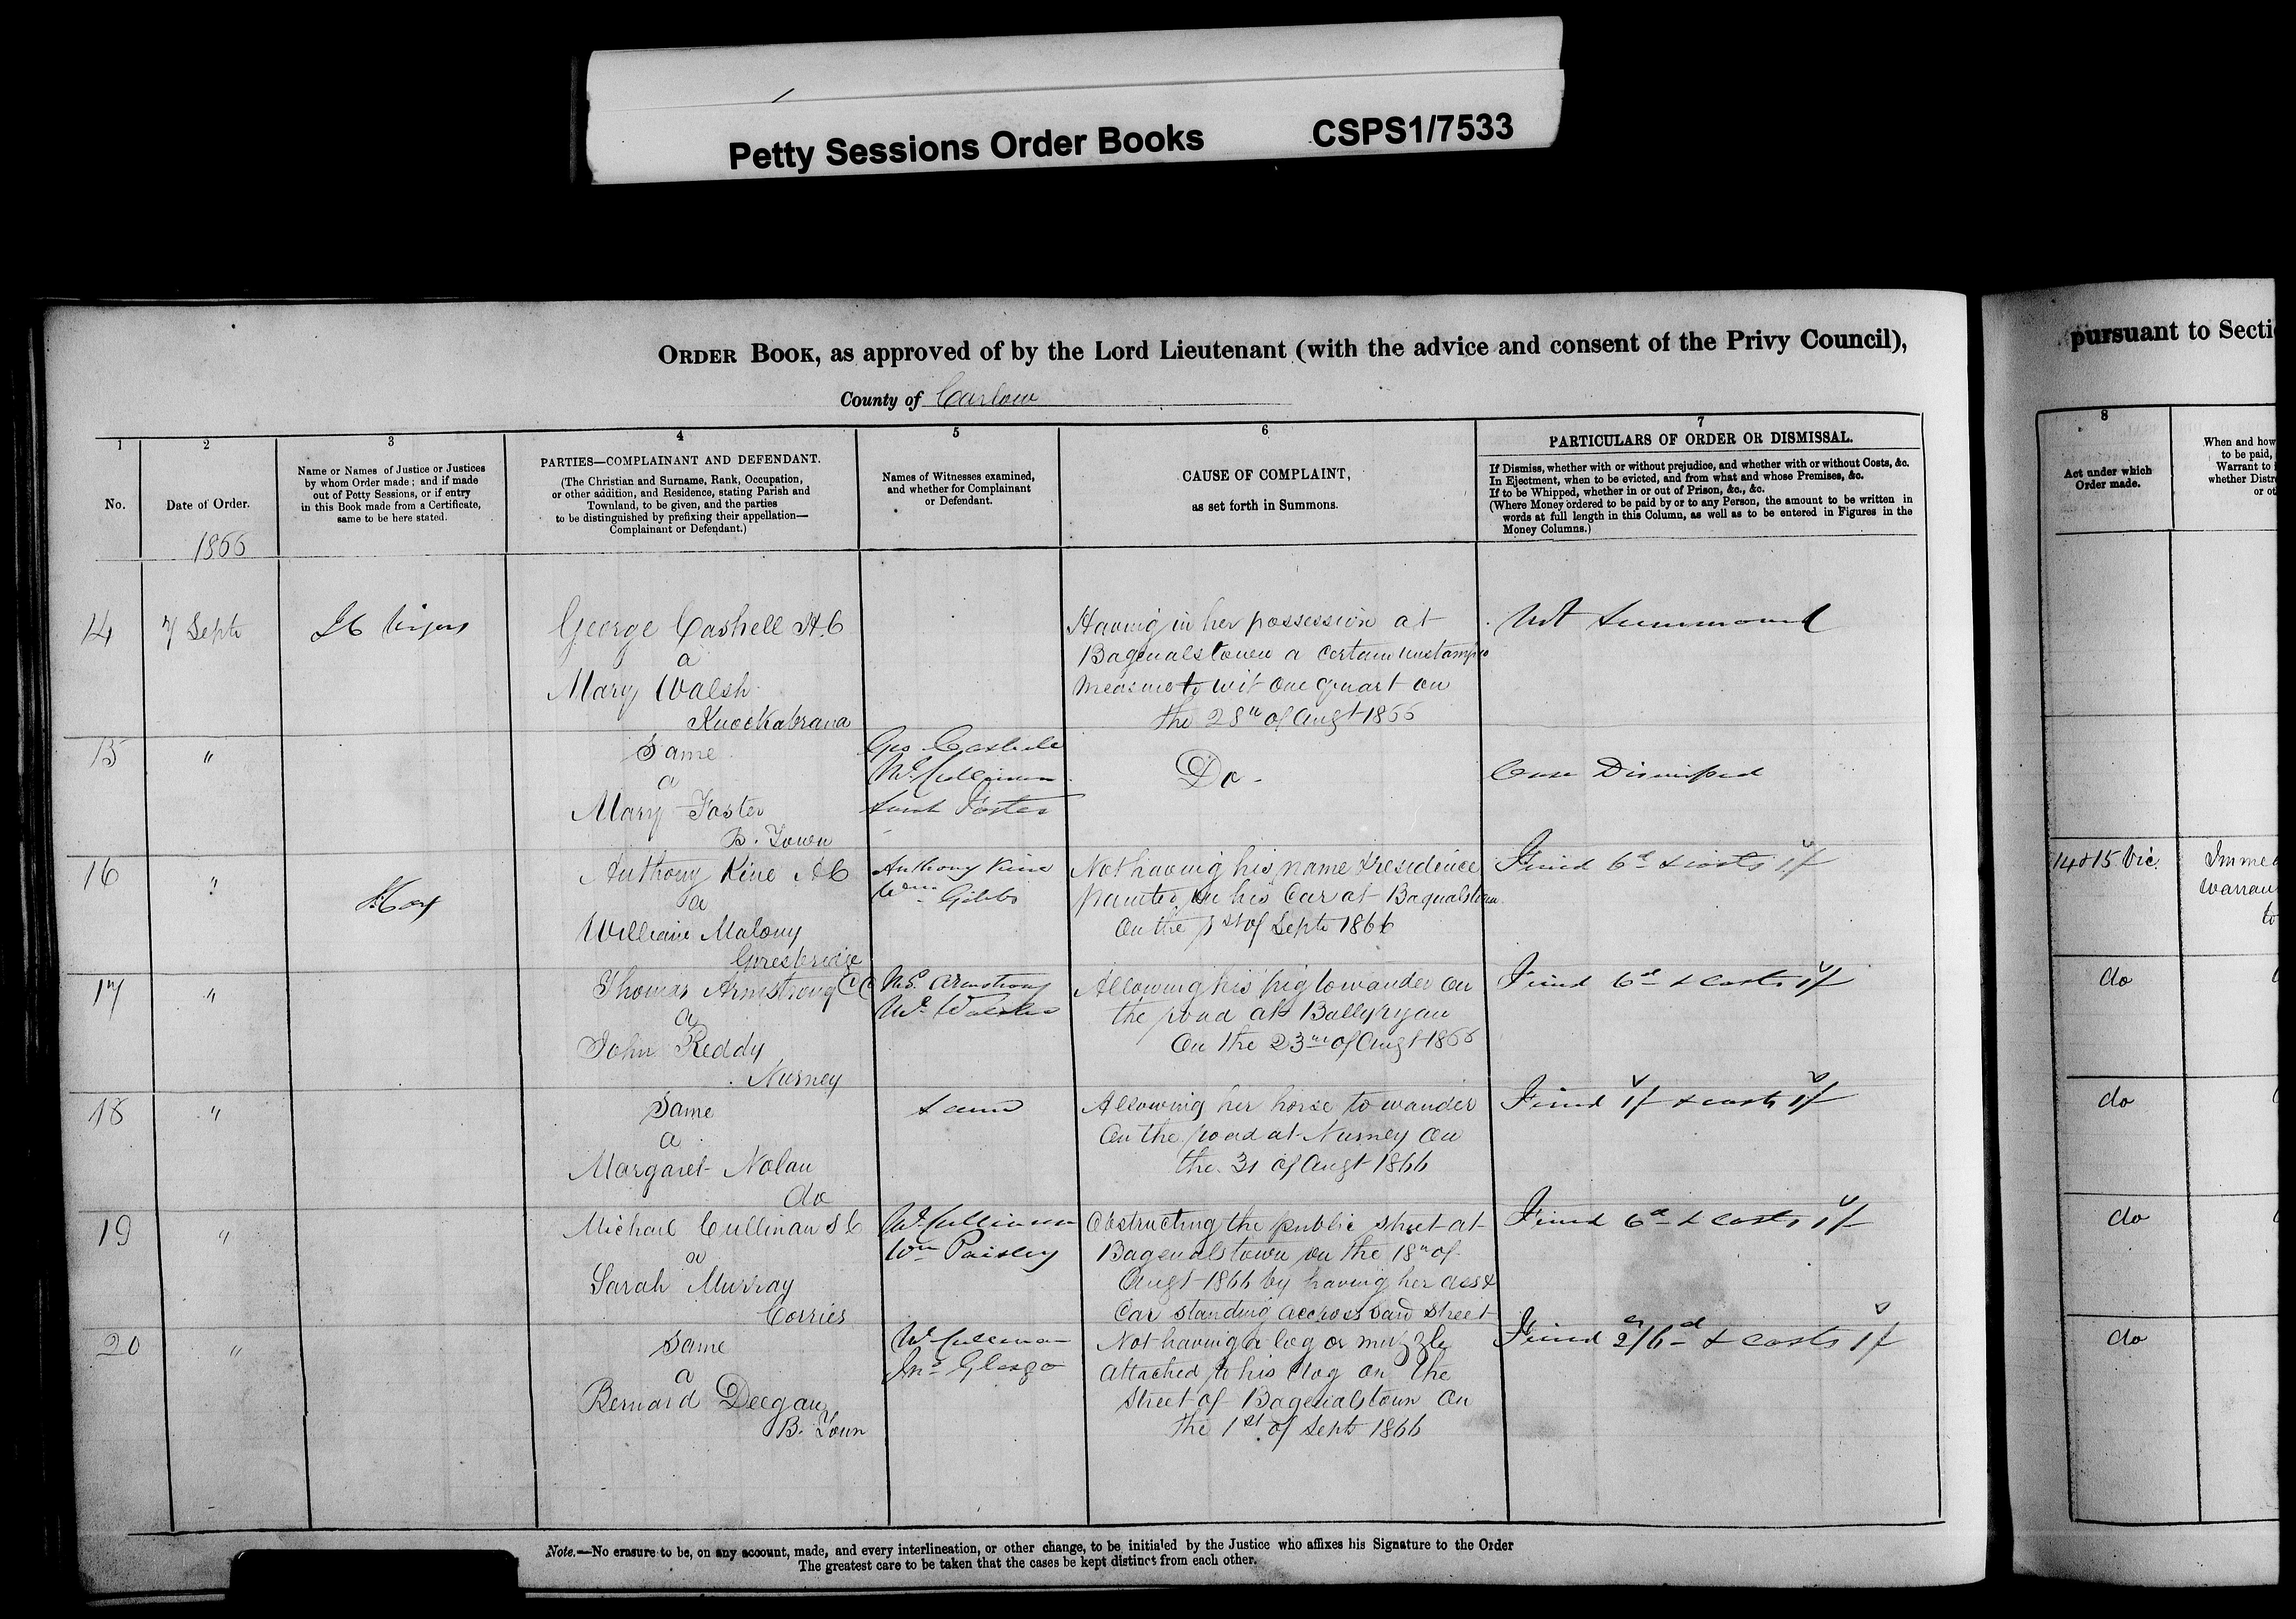 Petty Sessions Order Books CSPS1/7533
ORDER BOOK, as approved of by the Lord Lieutenant (with the advice and consent of the Privy Council),
County of Carlow
1
No.
2
Date of Order.
1866
3
Name or Names of Justice or Justices
by whom Order made; and if made
out of Petty Sessions, or if entry
in this Book made from a Certificate,
same to be here stated.
4
PARTIES—COMPLAINANT AND DEFENDANT.
(The Christian and Surname, Rank, Occupation,
or other addition, and Residence, stating Parish and
Townland, to be given, and the parties
to be distinguished by prefixing their appellation—
Complainant or Defendant.)
5
Names of Witnesses examined,
and whether for Complainant
or Defendant.
6
CAUSE OF COMPLAINT,
as set forth in Summons.
7
PARTICULARS OF ORDER OR DISMISSAL.
If Dismiss, whether with or without prejudice, and whether with or without Costs, &c.
In Ejectment, when to be evicted, and from what and whose Premises, &c.
If to be Whipped, whether in or out of Prison, &c., &c.
(Where Money ordered to be paid by or to any Person, the amount to be written in
words at full length in this Column, as well as to be entered in Figures in the
Money Columns.)
14
7 Septr
George Cashell H.C
a
Mary Walsh
Knockabrana
Having in her possession at
Bagenalstown a certain unstamped
measure to wit one quart on
the 28th of Augt 1866
Not Summoned
15
"
Same
a
Mary Foster
B. Town
Geo Cashell
Ml Cullinan
Sarah Foster
Do
Case Dismissed
16
"
Anthony Kine AC
a
William Malony
Goresbridge
Anthony Kine
Wm Gibbs
Not having his name & residence
painted on his Car at Bagnalstown
on the 1st of Septr 1866
Fined 6d & costs 1/
17
"
Thomas Armstrong CC
a
John Reddy
Nurney
Armstrong
Allowing his pig to wander on
the road at Ballyryan
On the 23rd of Augt 1866
Fined 6d & costs 1/
18
"
Same
a
Margaret Nolan
do
Same
Allowing her horse to wander
On the road at Nurney on
the 31 of Augt 1866
Fined 1/ & costs 1/
19
"
Michael Cullinan SC
a
Sarah Murray
Corries
Ml Cullinan
Wm Paisley
Obstructing the public street at
Bagenalstown on the 18th of
Augt 1866 by having her ass &
Car standing accross said street
Fined 6d & costs 1/
20
"
Same
a
Bernard Deegan
B. Town
Ml Cullinan
Jno Glasgo
Not having a log or muzzle
attached to his dog on the
street of Bagenalstown on
the 1st of Septr 1866
Fined 2/6d & costs 1/
Note.—No erasure to be, on any account, made, and every interlineation, or other change, to be initialed by the Justice who affixes his Signature to the Order
The greatest care to be taken that the cases be kept distinct from each other.
pursuant to Secti
8
Act under which
Order made.
When and how
to be paid,
Warrant to i
whether Distr
or ot
14 & 15 Vic
Imme
warran
to
do
do
do
do